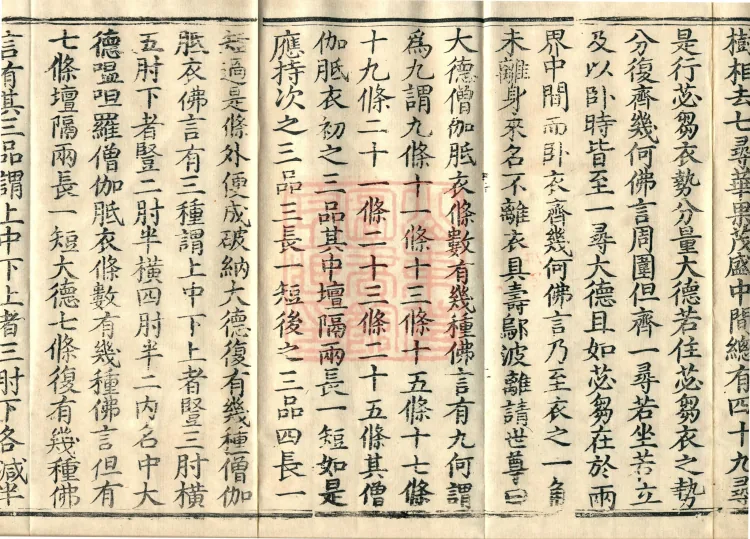 樹相去七尋華果茂盛中間總有四十九尋
是行苾芻衣勢分量大德若住苾芻衣之勢
分復齊幾何佛言周圍但齊一尋若坐若立
及以卧時皆至一尋大德且如苾芻在於兩
界中間而卧衣齊幾何佛言乃至衣之一角
未離身來名不離衣具壽鄔波離請世尊曰
大德僧伽胝衣條數有幾種佛言有九何謂
爲九謂九條十一條十三條十五條十七條
十九條二十一條二十三條二十五條其僧
伽胝衣初之三品其中壇隔兩長一短如是
應持次之三品三長一短後之三品四長一
短過是條外便成破納大德復有幾種僧伽
胝衣佛言有三種謂上中下上者豎三肘橫
五肘下者豎二肘半橫四肘半二內名中大
德嗢呾羅僧伽胝衣條數有幾種佛言但有
七條壇隔兩長一短大德七條復有幾種佛
言有其三品謂上中下上者三肘下各減半